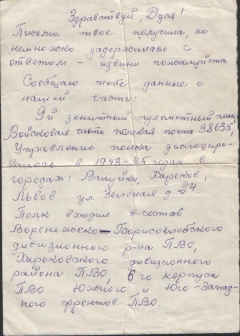 Здравствуй, Дуся!
Письмо твоё получила, но
немножко задержалась с
ответом – извини пожалуйста
Сообщаю тебе данные о
нашей части:
9й зенитный пулемётный полк
Войсковая часть полевая почта 38635,
Управление полка дислоциро-
валось в 1942-45 годах в
городах: Валуйки, Харьков,
Львов ул Зелёная д. 24
Полк входил в состав
Ворошиловско-Борисоглебского
дивизионного р-на ПВО,
Харьковского дивизионного
района ПВО, 6го корпуса
ПВО Южного и Юго-Запад-
ного фронтов ПВО.